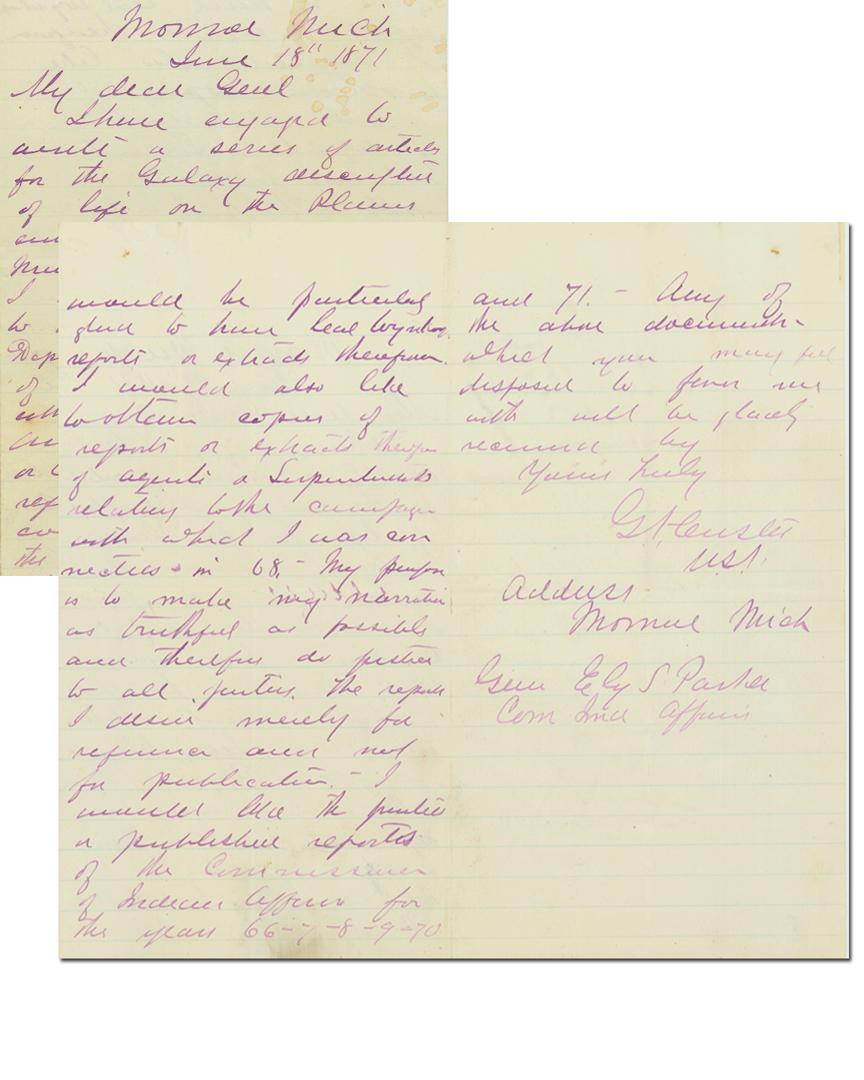 Monroe Mich
June 18" 1871
My dear Genl
I have engaged to
write a series of articles
for the Galaxy descriptive
of life on the Plains
I
to
Dep
of
or
ref
the
would be particularly
glad to have Col Wynkoop
reports or extracts therefrom.
I would also like
to obtain copies of
reports or extracts therefrom
of agents or Superintendents
relating to the campaign
with which I was con
nected in 68. - My purpose
is to make my narrative
as truthful as possible
and therefore do justice
to all parties. The reports
I desire merely for
reference and not
for publication. - I
would like the printed
or published reports
of the Commissioner
of Indian Affairs for
the years 66-7-8-9-70
and 71. - Any of
the above documents
which you may feel
disposed to favor me
with will be gladly
received by
Yours truly
G A Custer
USA.
Address
Monroe Mich
Genl Ely S Parker
Com Ind Affairs